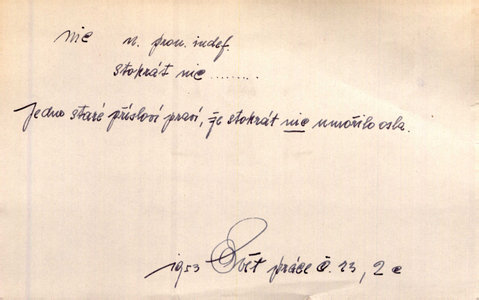 nic n. pron. indef.
stokrát nic ........
Jedno staré přísloví praví, že stokrát nic umořilo osla.
1953 Svět práce č. 23, 2 c